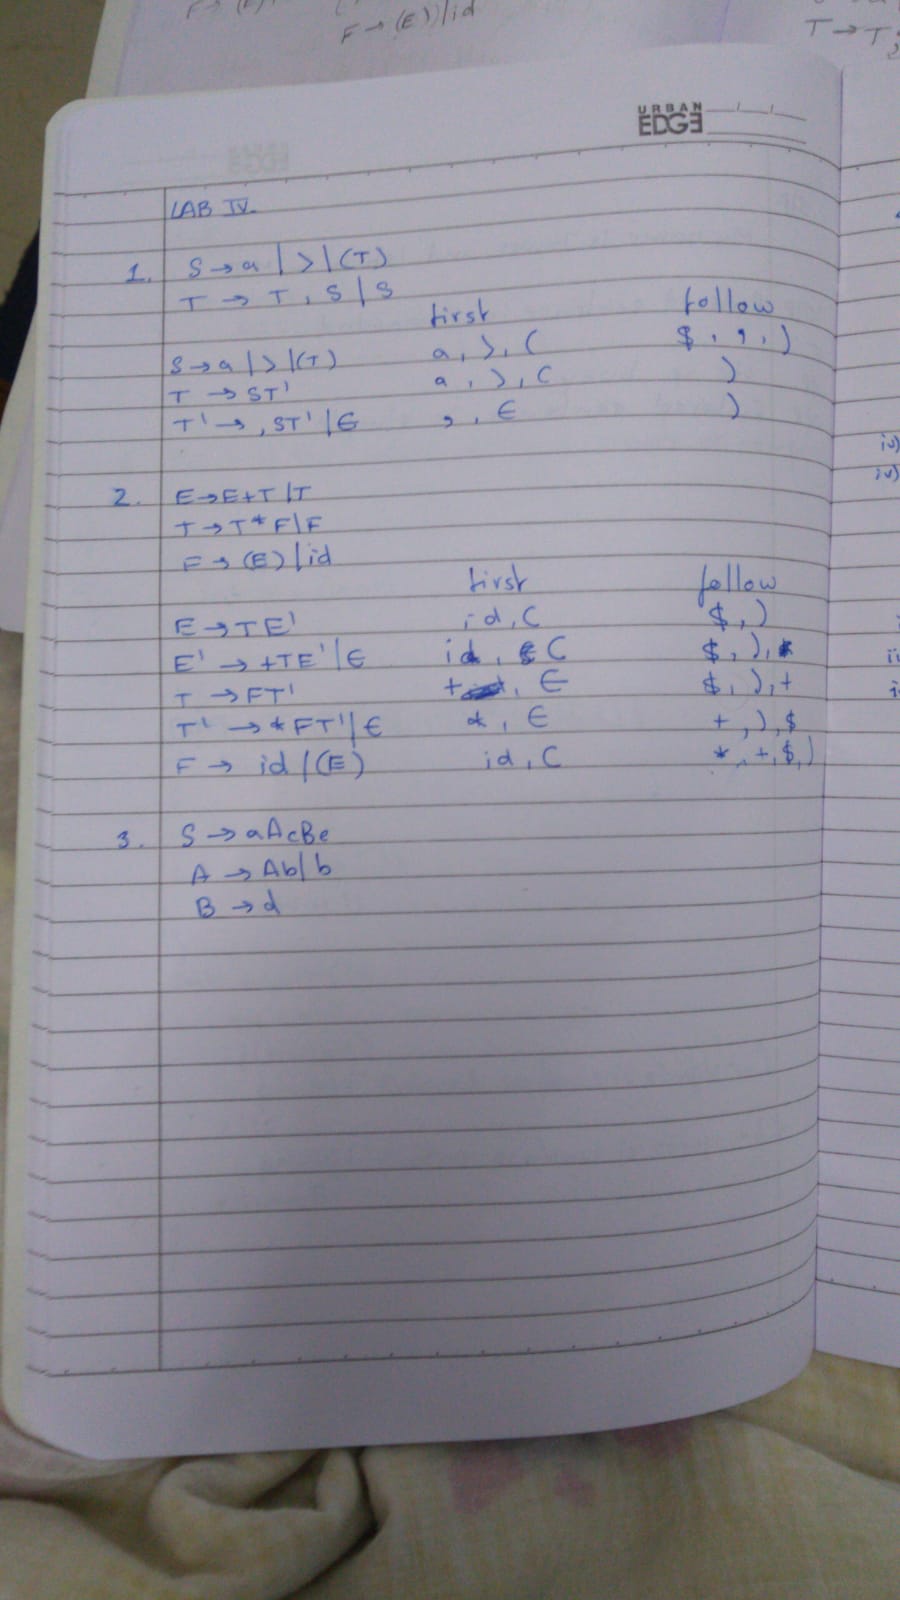 F → (E) | id
T → T
URBAN
EDGE
LAB IV
1. S → a | > | (T)
T → T, S | S
first follow
S → a | > | (T) a, >, ( $, ,, )
T → ST' a, >, ( )
T' → ,ST' | ε ,, ε )
2. E → E+T | T
T → T*F | F
F → (E) | id
first follow
E → TE' id, ( $, )
E' → +TE' | ε id, ( $, )
T → FT' +, ε $, ), +
T' → *FT' | ε *, ε +, ), $
F → id | (E) id, ( *, +, $, )
3. S → aAcBe
A → Ab | b
B → d
iv)
iv)